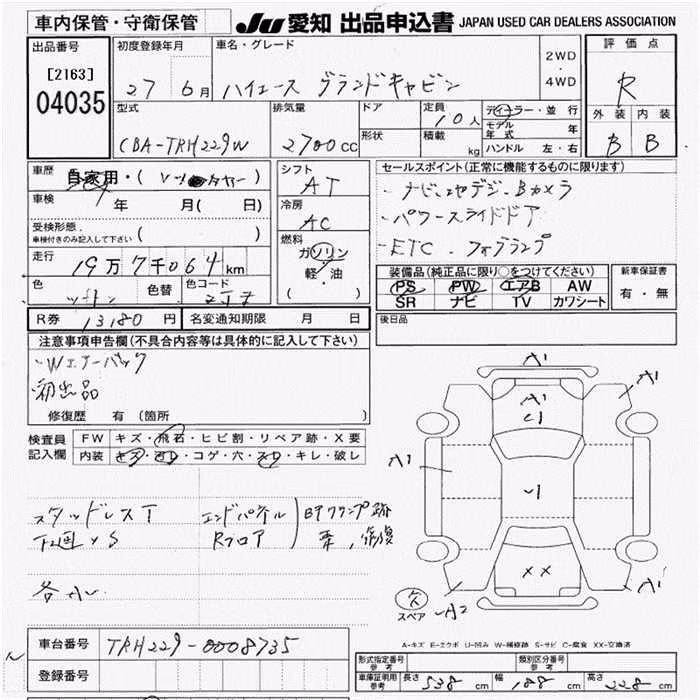 車内保管・守衛保管
JU 愛知 出品申込書 JAPAN USED CAR DEALERS ASSOCIATION
出品番号
[2163]
04035
初度登録年月
27 6月
車名・グレード
ハイエース グランドキャビン
2WD
・
4WD
評価点
R
外装 内装
B B
型式
CBA-TRH229W
排気量
2700cc
ドア
形状
定員
10人
積載
kg
ディーラー・並行
モデル年式 年
ハンドル 左・右
車歴
自家用・(
車検 年 月( 日)
受検形態
車検付きのみ記入して下さい ( )
走行
19万7千064km
色
色替
色コード
シフト
AT
冷房
AC
燃料
ガソリン
軽・油
( )
セールスポイント(正常に機能するものに限ります)
・パワースライドドア
・ETC
装備品(純正品に限り○をつけてください)
PS PW エアB AW
SR ナビ TV カワシート
新車保証書
有・無
R券 13180円
名変通知期限 月 日
後日品
注意事項申告欄(不具合内容等は具体的に記入して下さい)
・Wエアーバック
初出品
修復歴 有 (箇所
検査員
記入欄
FW キズ・飛石・ヒビ割・リペア跡・X要
内装 キズ・ヨゴレ・コゲ・穴・スレ・キレ・破レ
スタッドレスT
エンドパネル
Rフロア
各小
A1
A1
A1
A1
A1
A2
XX
欠
スペア
A-キズ E-エクボ U-凹み W-補修跡 S-サビ C-腐食 XX-交換済
車台番号
TRH229-0008735
登録番号
形式指定番号
参考
類別区分番号
参考
車庫証明用
参考
長さ 538 cm
幅 188 cm
高さ 228 cm